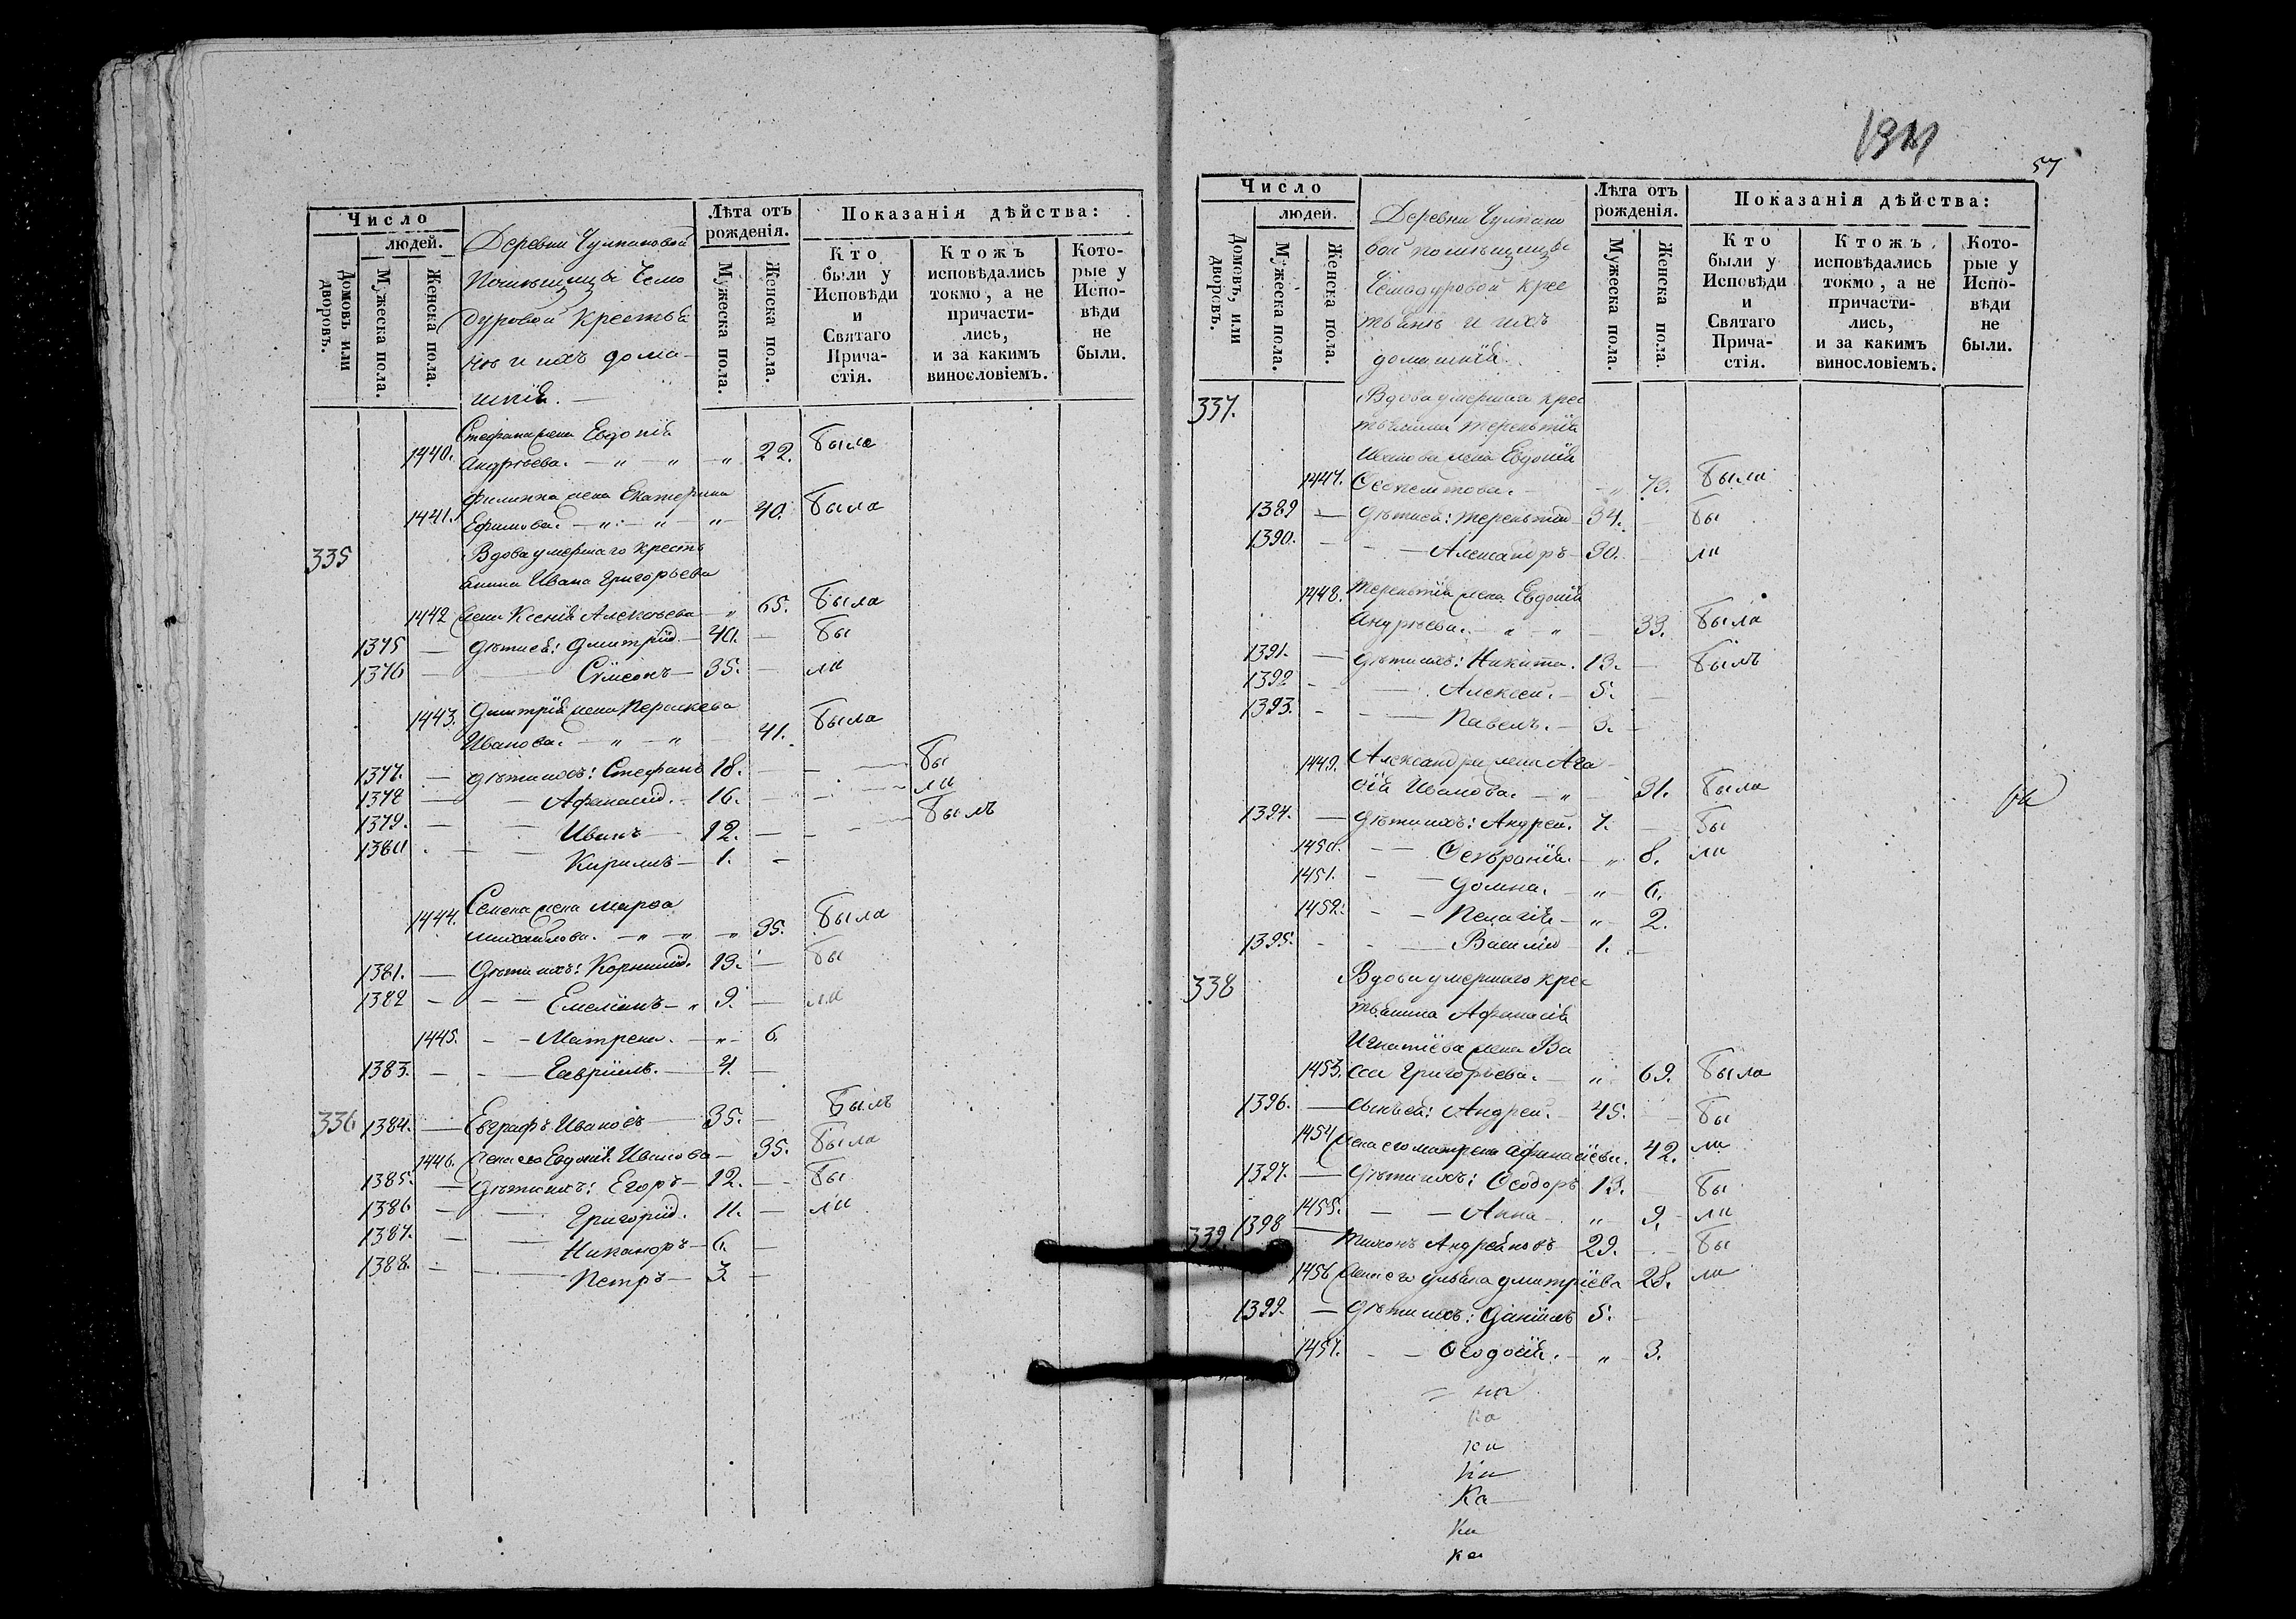 Число
людей.
Домовъ или дворовъ.
Мужеска пола.
Женска пола.
Деревни Чулпановой
Помѣщицы Чемо
дуровой Крестья
нъ и ихъ дома-
шнія. —
Лѣта отъ рожденія.
Мужеска пола.
Женска пола.
Показанія дѣйства:
Кто были у Исповѣди и Святаго Прича-стія.
Ктожъ исповѣдались токмо, а не причасти-лись, и за какимъ винословіемъ.
Кото-рые у Испо-вѣди не были.
Стефана жена Евдокія
1440. Андрѣева. — „ — „ — „ 22. Была
Филиппа жена Екатерина
1441. Ефимова. — „ — „ — „ 40. Была
335 Вдова умершаго кресть
янина Ивана Григорьева
1442 жена Ксенія Алексѣева — „ 65. Была
1375 — дѣти ея: Дмитрій — 40. — Бы
1376 — Сѵмеонъ — 35. — ли
Дмитрія жена Параскева
1443. Иванова. — „ — „ — 41. Была
1377. — дѣти ихъ: Стефанъ 18. — Бы
1378 — Афанасій. — 16. — ли
1379. — Иванъ — 12. — Былъ
1380. — Кирилъ — 1. —
Семена жена Марѳа
1444. Михайлова. — „ — „ — „ 35. Была
1381. — Дѣти ихъ: Корнилій. 13. — Бы
1382 — Емеліанъ — „ 9. — ли
1445. — Матрена. — „ — 6.
1383. — Гавріилъ. — 4. —
336 1384. — Евграфъ Ивановъ — 35. — Былъ
1446. Жена его Евдокія Иванова — 35. Была
1385. — Дѣти ихъ: Егоръ — 12. — Бы
1386 — Григорій. 11. — ли
1387. — Никаноръ — 6. —
1388. — Петръ — 3. —
57
Число
людей.
Домовъ, или дворовъ.
Мужеска пола.
Женска пола.
Деревни Чулпано
вой помѣщицы
Чемодуровой крес
тьянъ и ихъ
домашнія.
Лѣта отъ рожденія.
Мужеска пола.
Женска пола
Показанія дѣйства:
Кто были у Исповѣди и Святаго Прича-стія.
Ктожъ исповѣдались токмо, а не причасти-лись, и за какимъ винословіемъ.
Кото-рые у Испо-вѣди не были.
337. Вдова умершаго крес
тьянина Терентія
жена Евдокія
1447. — „ 73. Была
1389 — Дѣти ея: Терентій 34. — Бы
1390. — Александръ — 30. — ли
1448. Терентія жена Евдокія
Андрѣева. — „ — „ — 33. Была
1391. — Дѣти ихъ: Никита. 13. — Былъ
1392 — Алексей. — 5. —
1393. — Павелъ. — 3. —
1449. Александра жена Ага
ѳія Иванова. — „ — 31. Была
1394. — Дѣти ихъ: Андрей. 7. — Бы
1450. — Февронія. — „ 8. ли
1451. — Домна. — „ 6.
1452. — Пелагія — „ 2.
1395. — Василій 1. —
338 Вдова умершаго крес
тьянина Афанасія
Игнатіева жена Ва
1453. сса Григорьева. — „ 69. Была
1396. — Сынъ ея: Андрей. — 45. — Бы
1454 Жена его Матрена Афанасіева. 42. ли
1397. — Дѣти ихъ: Ѳеодоръ 13. — Бы
1455. — Анна — „ 9. — ли
339. 1398 — Тихонъ Андрѣяновъ 29. — Бы
1456 Жена его Ульяна Дмитріева 28. ли
1399. — Дѣти ихъ: Даніилъ 5. —
1457. — Ѳеодосія. — „ 3.
ка
ка
ка
Ка
ка